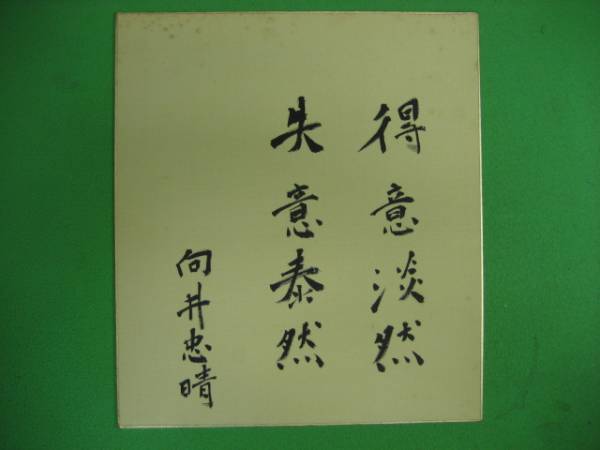 得意淡然
失意泰然
向井忠晴